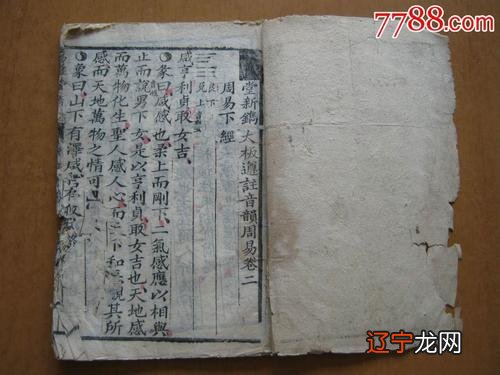 7788.com
堂新鐫大板遵註音韻周易卷二
周易下經
下
上
咸亨利貞取女吉
彖曰咸感也柔上而剛下二氣感應以相與
止而說男下女是以亨利貞取女吉也天地感
而萬物化生聖人感人心而下和其所
感而天地萬物之情可
象曰山下有澤咸君
辽宁龙网